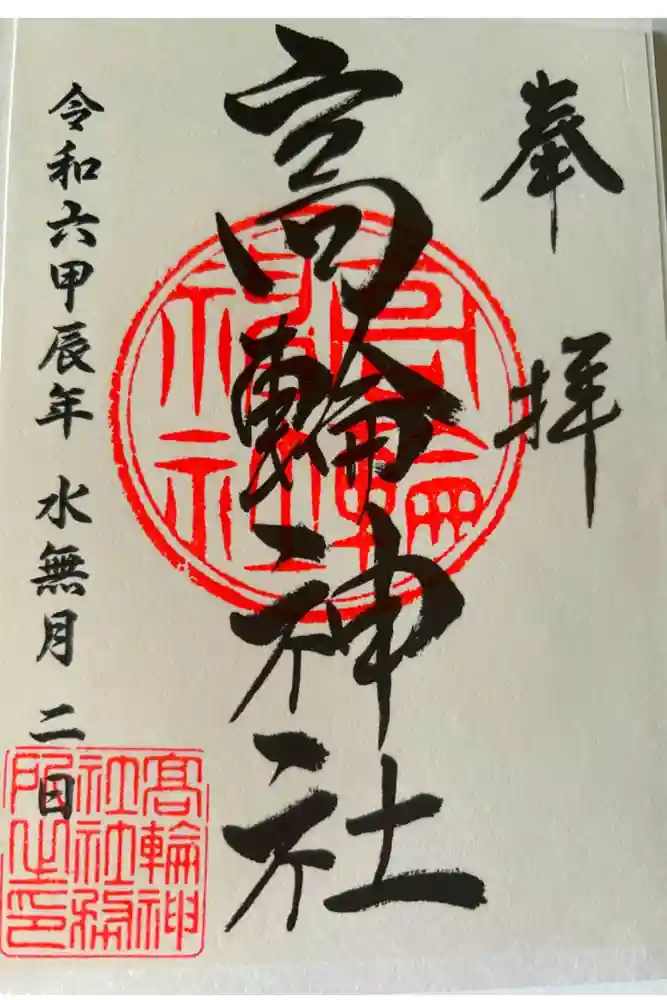 奉拝
高輪神社
令和六甲辰年 水無月 二日
高輪神社
高輪神社社務所之印